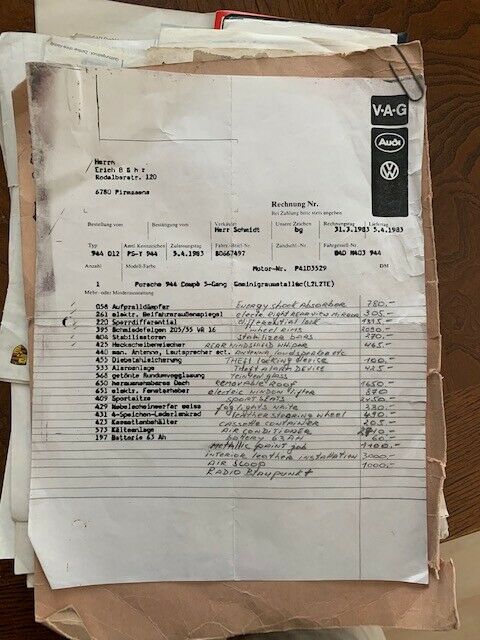 V·A·G
Audi
Herrn
Erich Bähr
Rodalberstr. 120
6780 Pirmasens
Rechnung Nr.
Bei Zahlung bitte stets angeben
Bestellung vom Bestätigung vom Verkäufer Unsere Zeichen Rechnungstag Liefertag
Herr Schmidt bg 31.3.1983 5.4.1983
Typ Amtl. Kennzeichen Zulassungstag Fahrz.-Brief-Nr. Zündschl.-Nr. Fahrgestell-Nr.
944 012 PS-Y 944 5.4.1983 80667497 DN403 944
Motor-Nr. P41D3529
Anzahl Modell-Farbe DM
1 Porsche 944 Coupé 5-Gang
Mehr- oder Minderausstattung
058 Aufpralldämpfer Energy shock absorber 780.-
261 elektr. Beifahreraußenspiegel electr Right rear view mirror 305
220 Sperrdifferential differential lock
395 Schmiedefelgen 205/55 VR 16 wheel rims
404 Stabilisatoren stabilizer bars 270.-
425 Heckscheibenwischer Rear windshield 465.-
440 man. Antenne, Lautsprecher etc. Antenna loudspeaker etc
455 Diebstahlsicherung Theft locking device 100.-
533 Alarmanlage Theft alarm device 425.-
568 getönte Rundumverglasung glass
650 herausnehmbares Dach Removable Roof 1650.-
651 elektr. Fensterheber electric window lifter 870
409 Sportsitze Sport seats
429 Nebelscheinwerfer weiss fog lights white 330.-
431 4-Speichen-Lederlenkrad leather steering wheel 490
423 Kassettenbehälter cassette container 205.-
573 Kälteanlage Air conditioner
197 Batterie 63 Ah battery 63 AH 60.-
Metallic paint job 1100.-
interior leather installation 3000.-
Air scoop 1000.-
Radio Blaupunkt